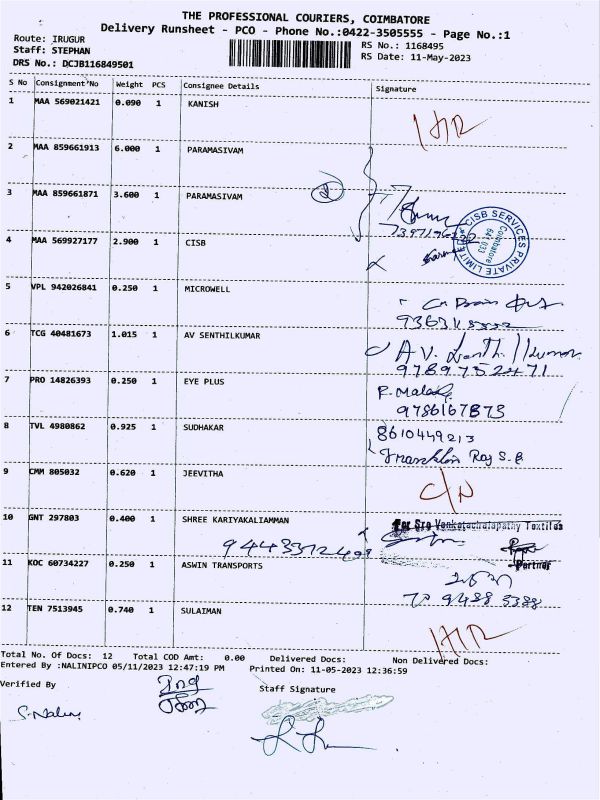 THE PROFESSIONAL COURIERS, COIMBATORE
Delivery Runsheet - PCO - Phone No.:0422-3505555 - Page No.:1
Route: IRUGUR
Staff: STEPHAN
DRS No.: DCJB116849501
RS No.: 1168495
RS Date: 11-May-2023
S No Consignment No Weight PCS Consignee Details Signature
1 MAA 569021421 0.090 1 KANISH
2 MAA 859661913 6.000 1 PARAMASIVAM
3 MAA 859661871 3.600 1 PARAMASIVAM
4 MAA 569927177 2.900 1 CISB
CISB SERVICES PRIVATE LIMITED
Coimbatore
641 033
5 VPL 942026841 0.250 1 MICROWELL
6 TCG 40481673 1.015 1 AV SENTHILKUMAR
A V.
9789752471
7 PRO 14826393 0.250 1 EYE PLUS
9786167873
8 TVL 4980862 0.925 1 SUDHAKAR
8610449213
Franklin Roy S.
9 CMM 805032 0.620 1 JEEVITHA
10 GNT 297803 0.400 1 SHREE KARIYAKALIAMMAN
For Sre Venkatachalapathy Textiles
Partner
11 KOC 60734227 0.250 1 ASWIN TRANSPORTS
12 TEN 7513945 0.740 1 SULAIMAN
Total No. Of Docs: 12 Total COD Amt: 0.00 Delivered Docs: Non Delivered Docs:
Entered By :NALINIPCO 05/11/2023 12:47:19 PM Printed On: 11-05-2023 12:36:59
Verified By
Staff Signature
S. Nalini